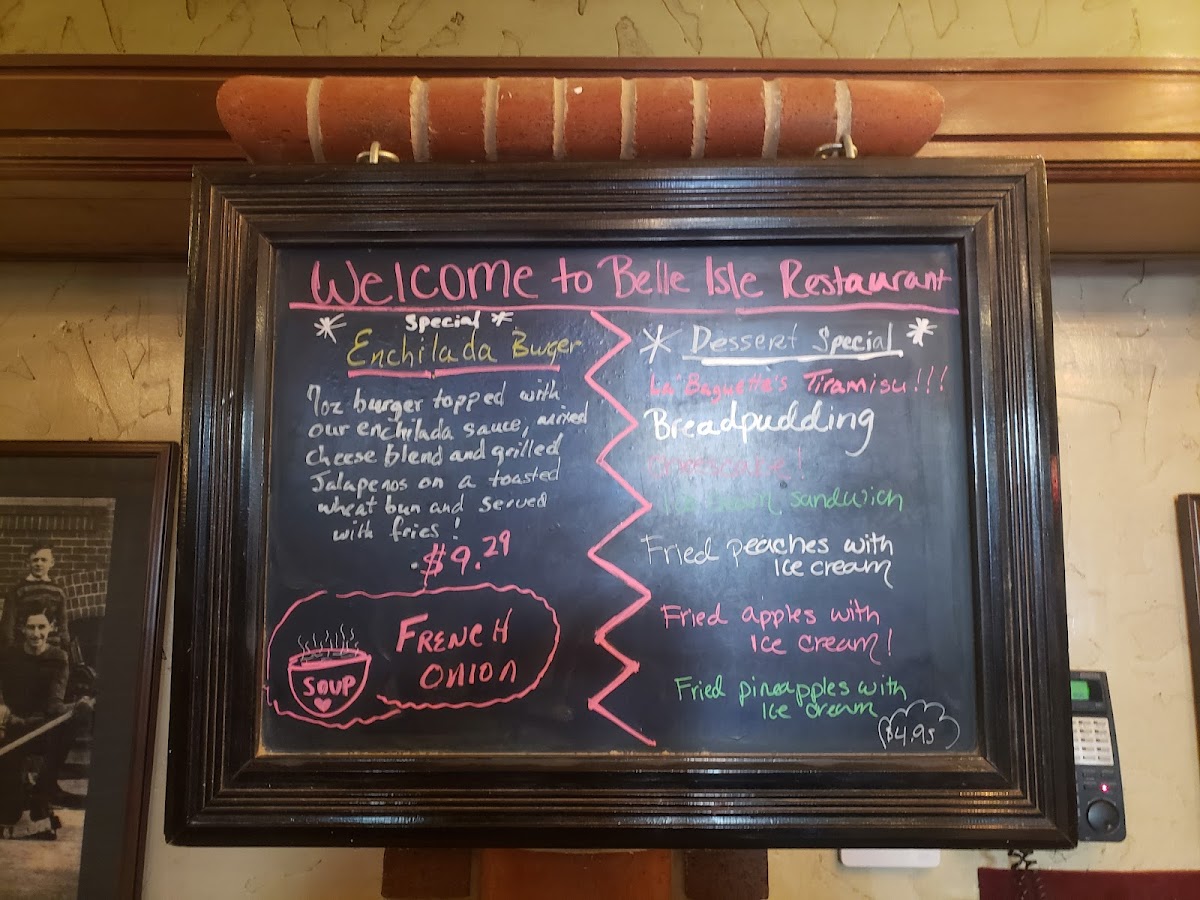 Welcome to Belle Isle Restaurant
* Special *
Enchilada Burger
7oz burger topped with
our enchilada sauce, mixed
cheese blend and grilled
Jalapenos on a toasted
wheat bun and served
with fries!
$9.29
SOUP
FRENCH
ONION
* Dessert Special *
La' Baguette's Tiramisu!!!
Breadpudding
cheesecake!
Ice cream sandwich
Fried peaches with
Ice cream
Fried apples with
Ice cream!
Fried pineapples with
Ice cream
$4.95